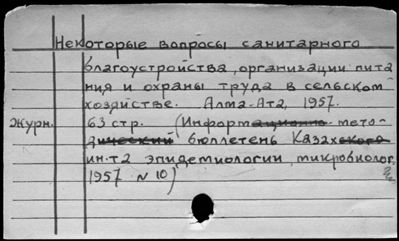 Некоторые вопросы санитарного
благоустройства, организации пита
ния и охраны труда в сельском
хозяйстве. Алма-Ата, 1957.
Журн. 63 стр. (Информационно-мето-
дический бюллетень Казахского
ин-та эпидемиологии, микробиолог.
1957 N 10)